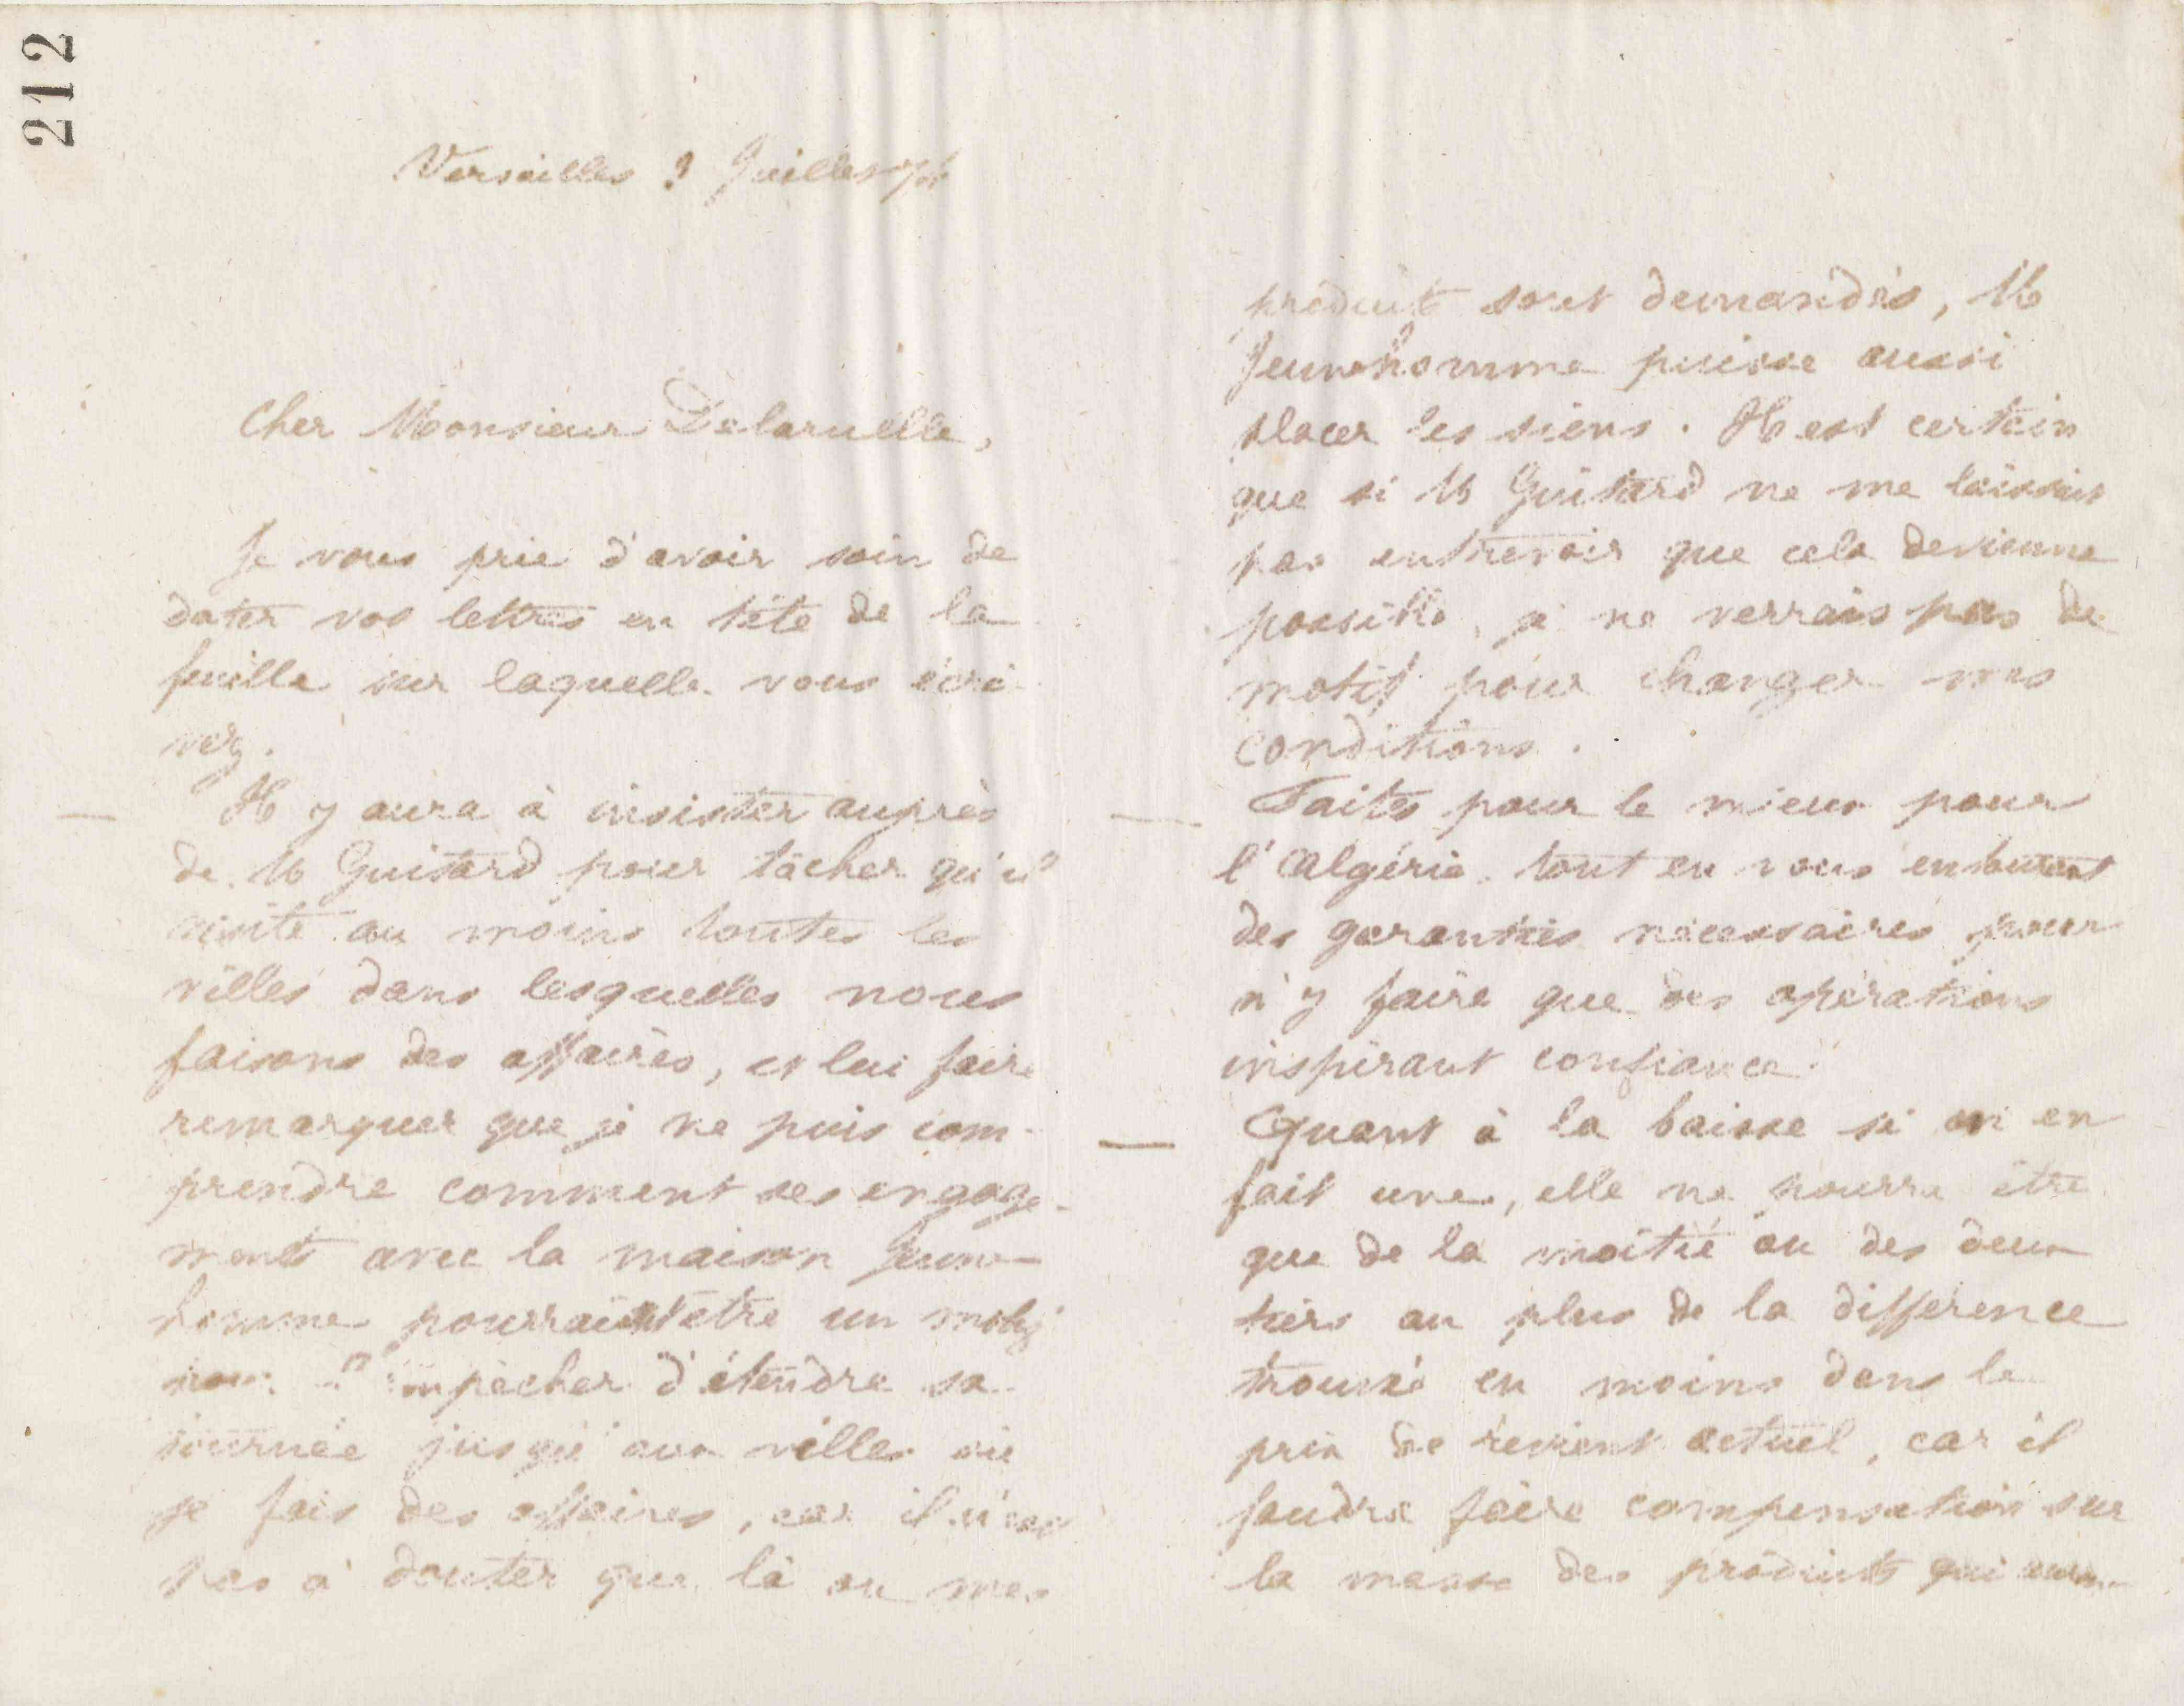 212
Versailles 3 Juillet
Cher Monsieur Delaruelle,
Je vous prie d'avoir soin de
dater vos lettres en tête de la
feuille sur laquelle vous écri
vez.
— Il y aura à insister auprès
de M Guitard pour tâcher qu'il
visite au moins toutes les
villes dans lesquelles nous
faisons des affaires, et lui faire
remarquer que je ne puis com-
prendre comment ses engage-
ments avec la maison Jeune-
homme pourraient être un motif
pour l'empêcher d'étendre sa
tournée jusqu'aux villes où
je fais des affaires, car il n'est
pas à douter que là ou mes
produits sont demandés, M
Jeunehomme puisse aussi
placer les siens. Il est certain
que si M Guitard ne me laissait
pas entrevoir que cela devienne
possible, je ne verrais pas de
motif pour changer mes
conditions.
— Faites pour le mieux pour
l'Algérie tout en vous entourant
des garanties nécessaires pour
n'y faire que des opérations
inspirant confiance.
— Quant à la baisse si on en
fait une, elle ne pourra être
que de la moitié ou des deux
tiers au plus de la différence
trouvé en moins dans le
prix de revient actuel, car il
faudra faire compensation sur
la masse des produits qui